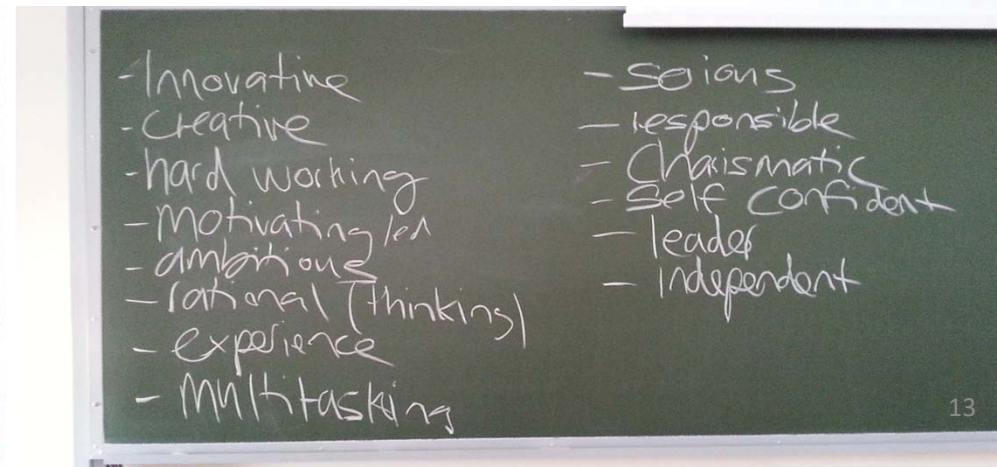 - Innovative
- Creative
- hard working
- Motivating/ed
- ambitious
- rational (thinking)
- experience
- Multitasking
- Serious
- responsible
- Charismatic
- Self confident
- leader
- Independent
13